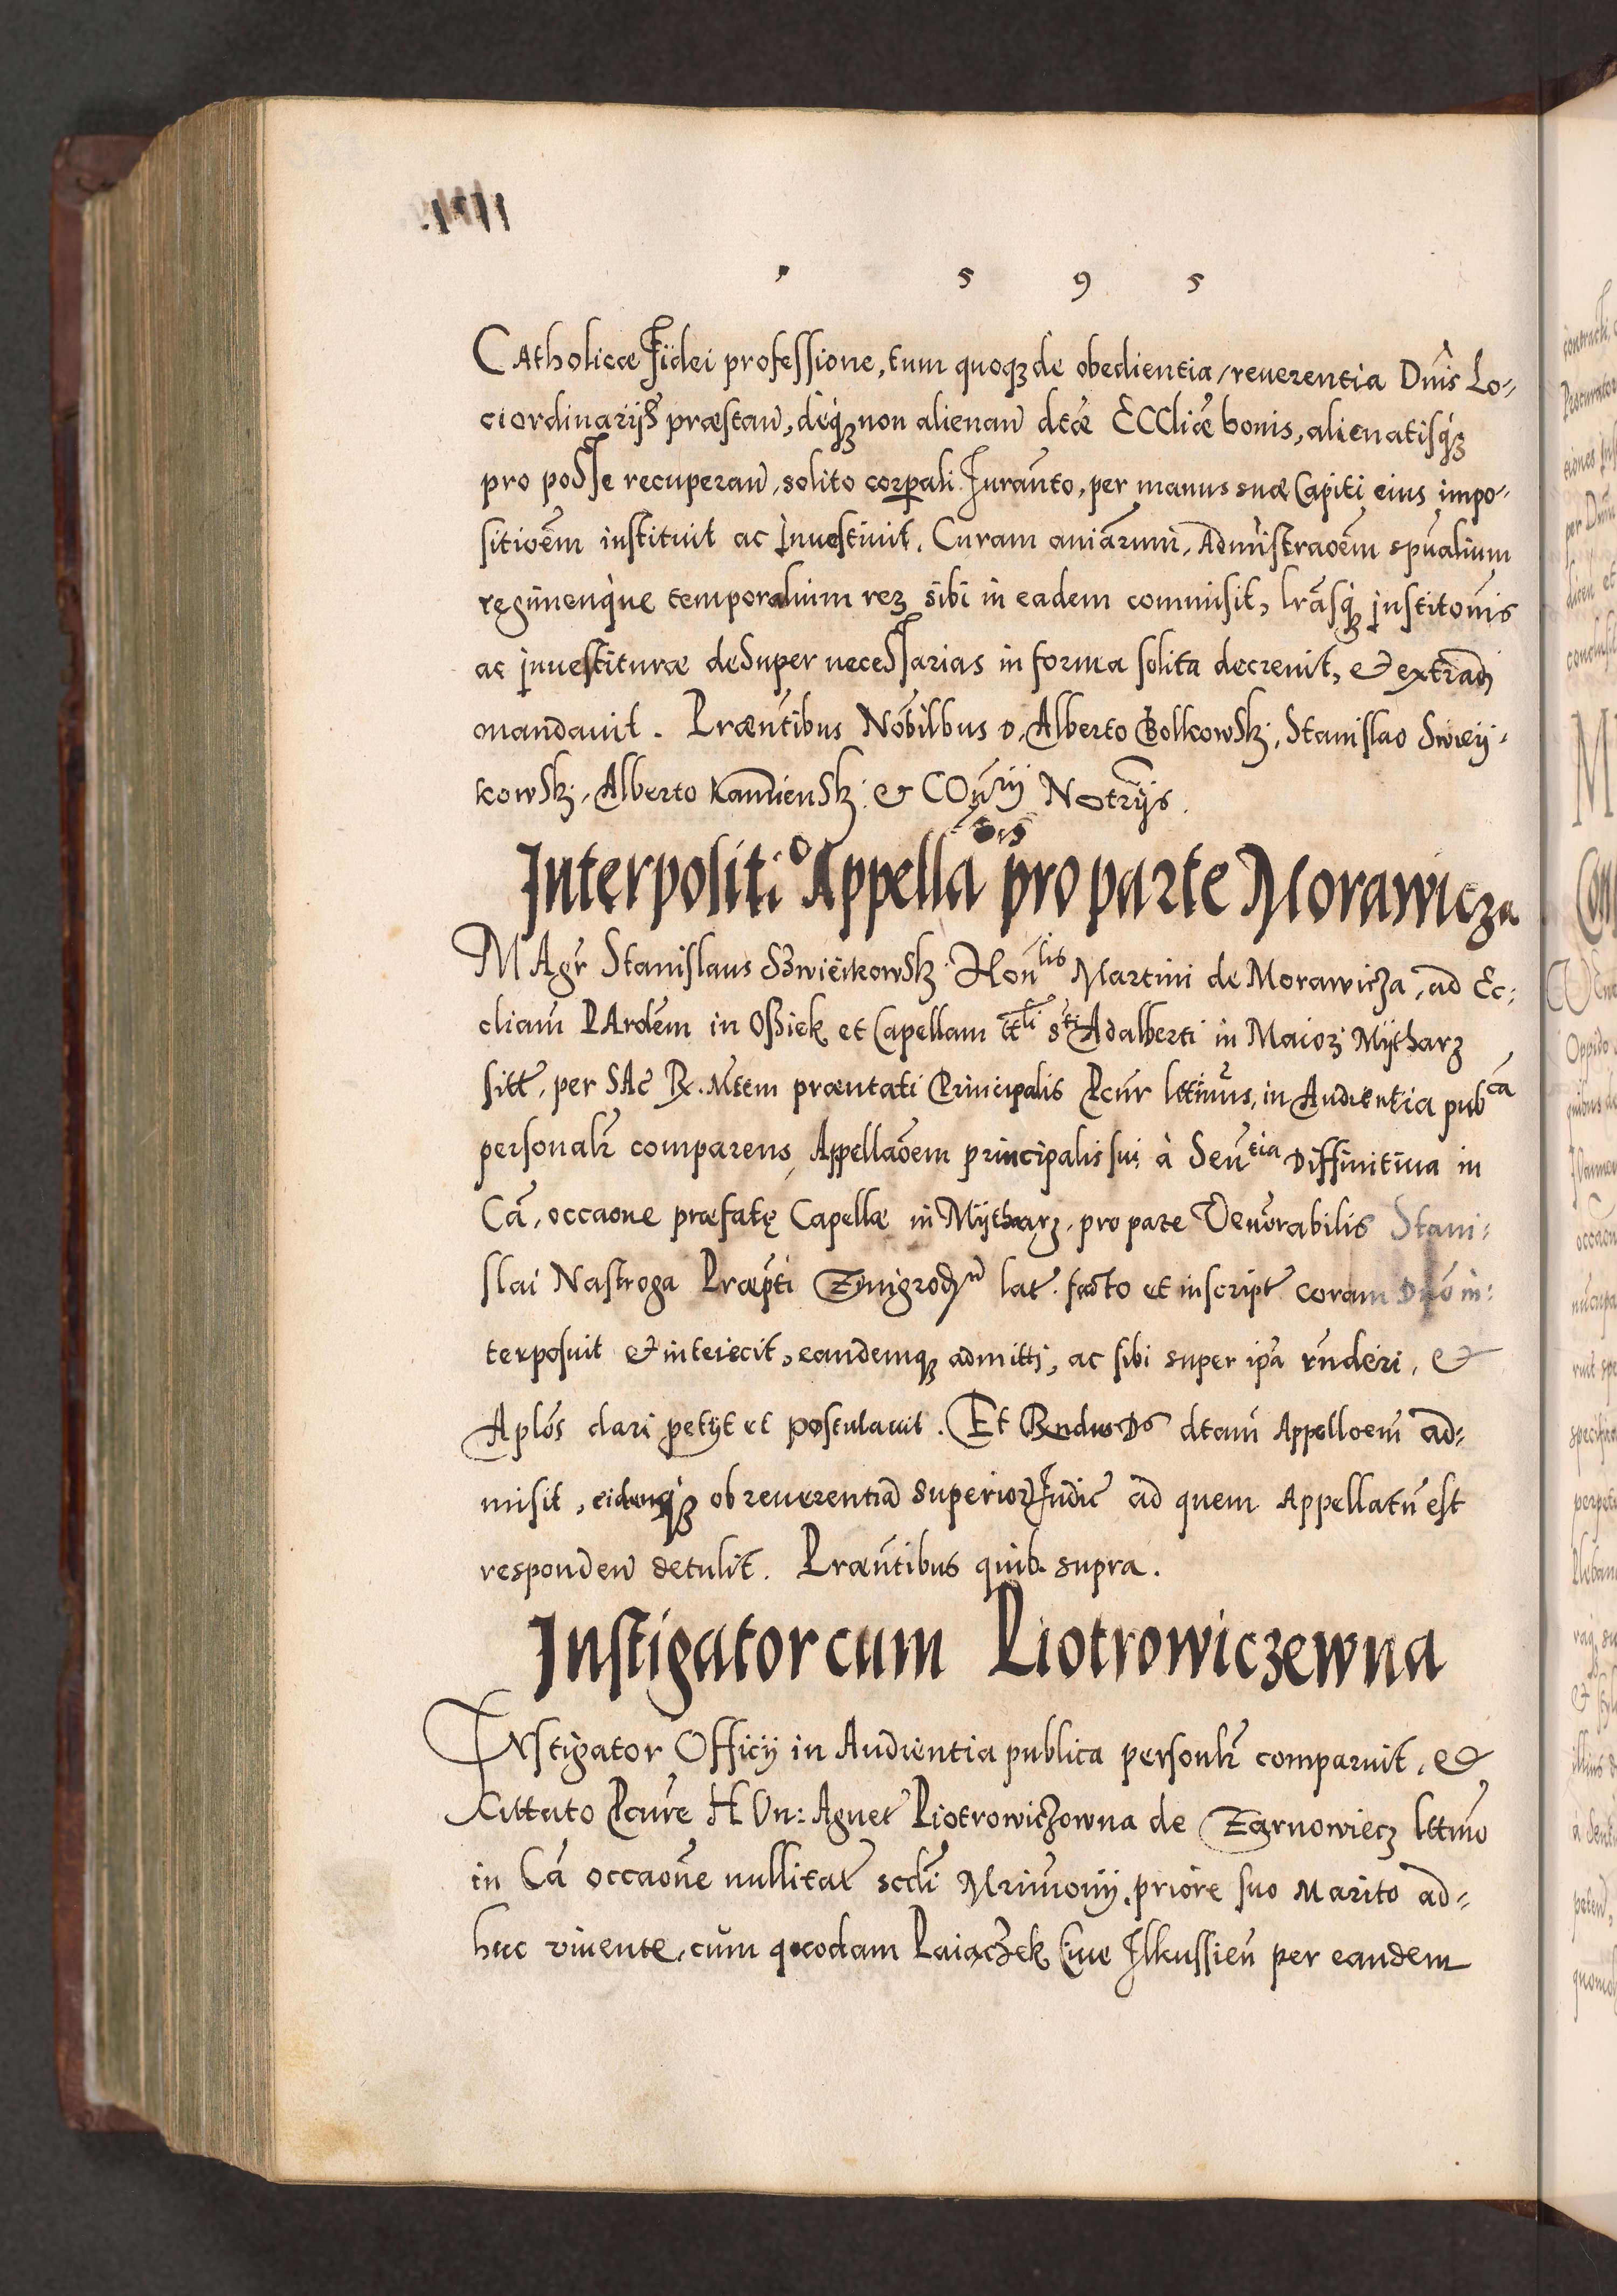 1 5 9 5
CAtholicæ Fidei professione, tum quoqꝫ de obedientia, reuerentia Dnis Lo-
ci ordinarijs præstan, deqꝫ non alienan dtæ ECCliæ bonis, alienatisqꝫ
pro posse recuperan, solito corpali Juranto, per manus suæ Capiti eius impo-
sitioem instituit ac Inuestiuit, Curam aniarum, Administraoem spualium
regimenque temporalium reꝝ sibi in eadem commisit, lrasqꝫ institonis
ac inuestituræ desuper necessarias in forma solita decreuit, & extradi
mandauit. Præntibus Nobilbus D. Alberto Bolkowskj, Stanislao Swieij-
kowskj, Alberto Kamienskj & COnrij Notrijs.
Interpositio Appellaōis pro parte Morawicza
MAgr Stanislaus Szwieikowskj Honlis Martini de Morawicza, ad Ec-
cliam PArdem in Ossiek et Capellam ttli sti Adalberti in Maiori Mÿtharz
sitt, per SAc R. Mtem præntati Principalis Pcur lttimus, in Audientia pubca
personalr comparens, Appellaōem principalis sui à Sentia Diffinitiua in
Ca, occaone præfatę Capellæ in Mÿtharz, pro parte Venerabilis Stani-
slai Nastroga Præpti Zmigrodn lat facto et inscript coram Dno in-
terposuit & inteiecit, eandemqꝫ admittj, ac sibi super ipa rnderi, &
Aplos dari petijt et postulauit. Et Rndus Ds dtam Appelloem ad-
misit, eidemqꝫ ob reuerentia Superior Judic ad quem Appellatu est
responden detulit. Præntibus quib. supra.
Instigator cum Piotrowiczewna
INstigator Officij in Audientia publica personlr comparuit, &
Cittato Pcure HOn: Agnet Piotrowiczowna de Zarnowiecz lttimo
in Ca occaone nullitat scdi Mrimonij, priore suo Marito ad-
huc viuente, cum quodam Paiączek Ciue Ilkussien per eandem